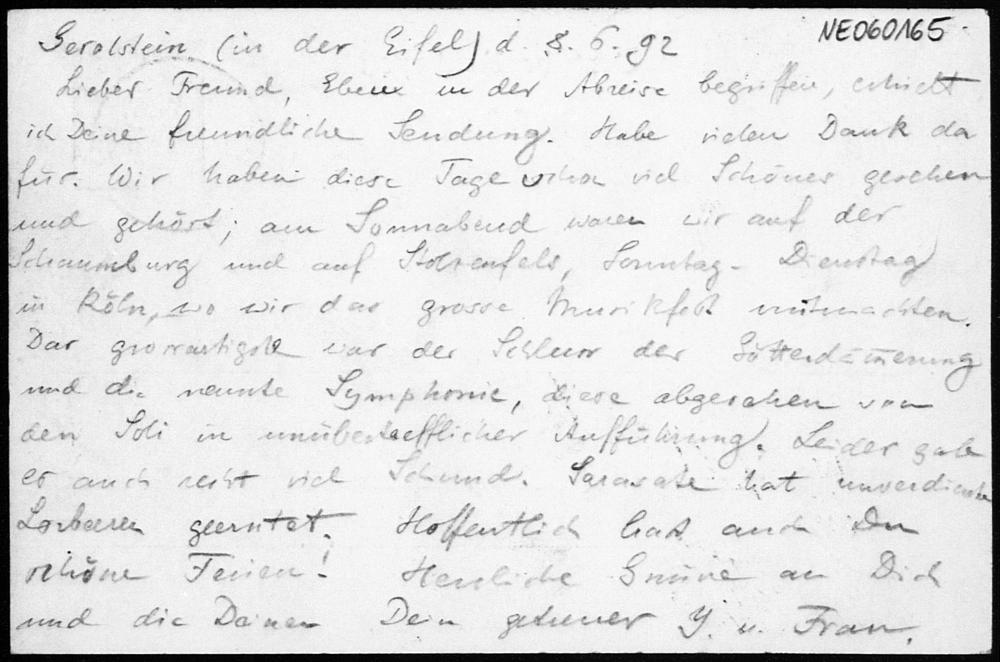 NE060165
Gerolstein (in der Eifel) d. 8. 6. 92
Lieber Freund, Eben in der Abreise begriffen, erhielt
ich Deine freundliche Sendung. Habe vielen Dank da
für. Wir haben diese Tage schon viel Schönes gesehen
und gehört; am Sonnabend waren wir auf der
Schaumburg und auf Stolzenfels, Sonntag - Dienstag
in Köln, wo wir das grosse Musikfest mitmachten.
Das grossartigste war der Schluss der Götterdämmerung
und die neunte Symphonie, diese abgesehen von
den Soli in unübertrefflicher Aufführung. Leider gab
es auch recht viel Schund. Sarasate hat unverdiente
Lorbeeren geerntet. Hoffentlich hast auch Du
schöne Ferien! Herzliche Grüsse an Dich
und die Deinen Dein getreuer J. u. Frau.